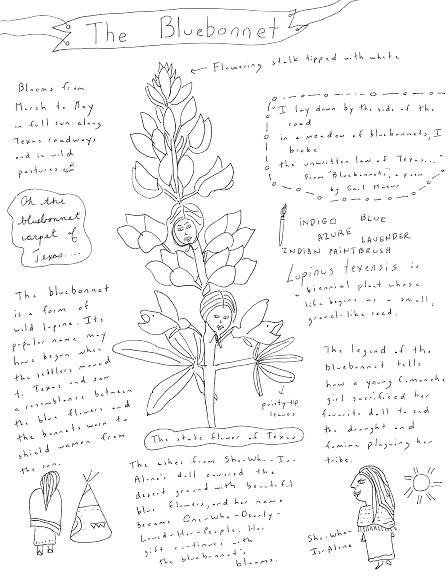 The Bluebonnet
Flowering stalk tipped with white
Blooms from
March to May
in full sun along
Texas roadways
and in wild
pastures.
I lay down by the side of the
road
in a meadow of bluebonnets, I
broke
the unwritten law of Texas..."
From "Bluebonnets", a poem
by Gail Mazur
Oh the
bluebonnet
carpet of
Texas....
INDIGO BLUE
AZURE LAVENDER
INDIAN PAINTBRUSH
Lupinus texensis is
biennial plant whose
life begins as a small,
gravel-like seed.
The bluebonnet
is a form of
wild lupine. Its
popular name may
have began when
the settlers moved
to Texas and saw
a resemblance between
the blue flowers and
the bonnets worn to
shield women from
the sun.
pointy-tip
leaves
The legend of the
bluebonnet tells
how a young Comanche
girl sacrificed her
favorite doll to end
the drought and
famine plaguing her
tribe.
The state flower of Texas
The ashes from She-Who-Is-
Alone's doll covered the
desert ground with beautiful
blue flowers, and her name
became One-Who-Dearly-
Loved-Her-People. Her
gift continues with
the bluebonnet's
blooms.
She-Who-
Is-Alone